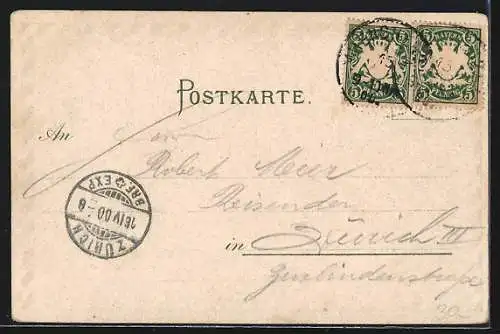 5 BAYERN 5 5 BAYERN 5
5 5 5 5
POSTKARTE.
An Herrn
Robert Meier
Reisender
in Zürich III
ZÜRICH
16 IV 00 - 8
BRF. EXP.